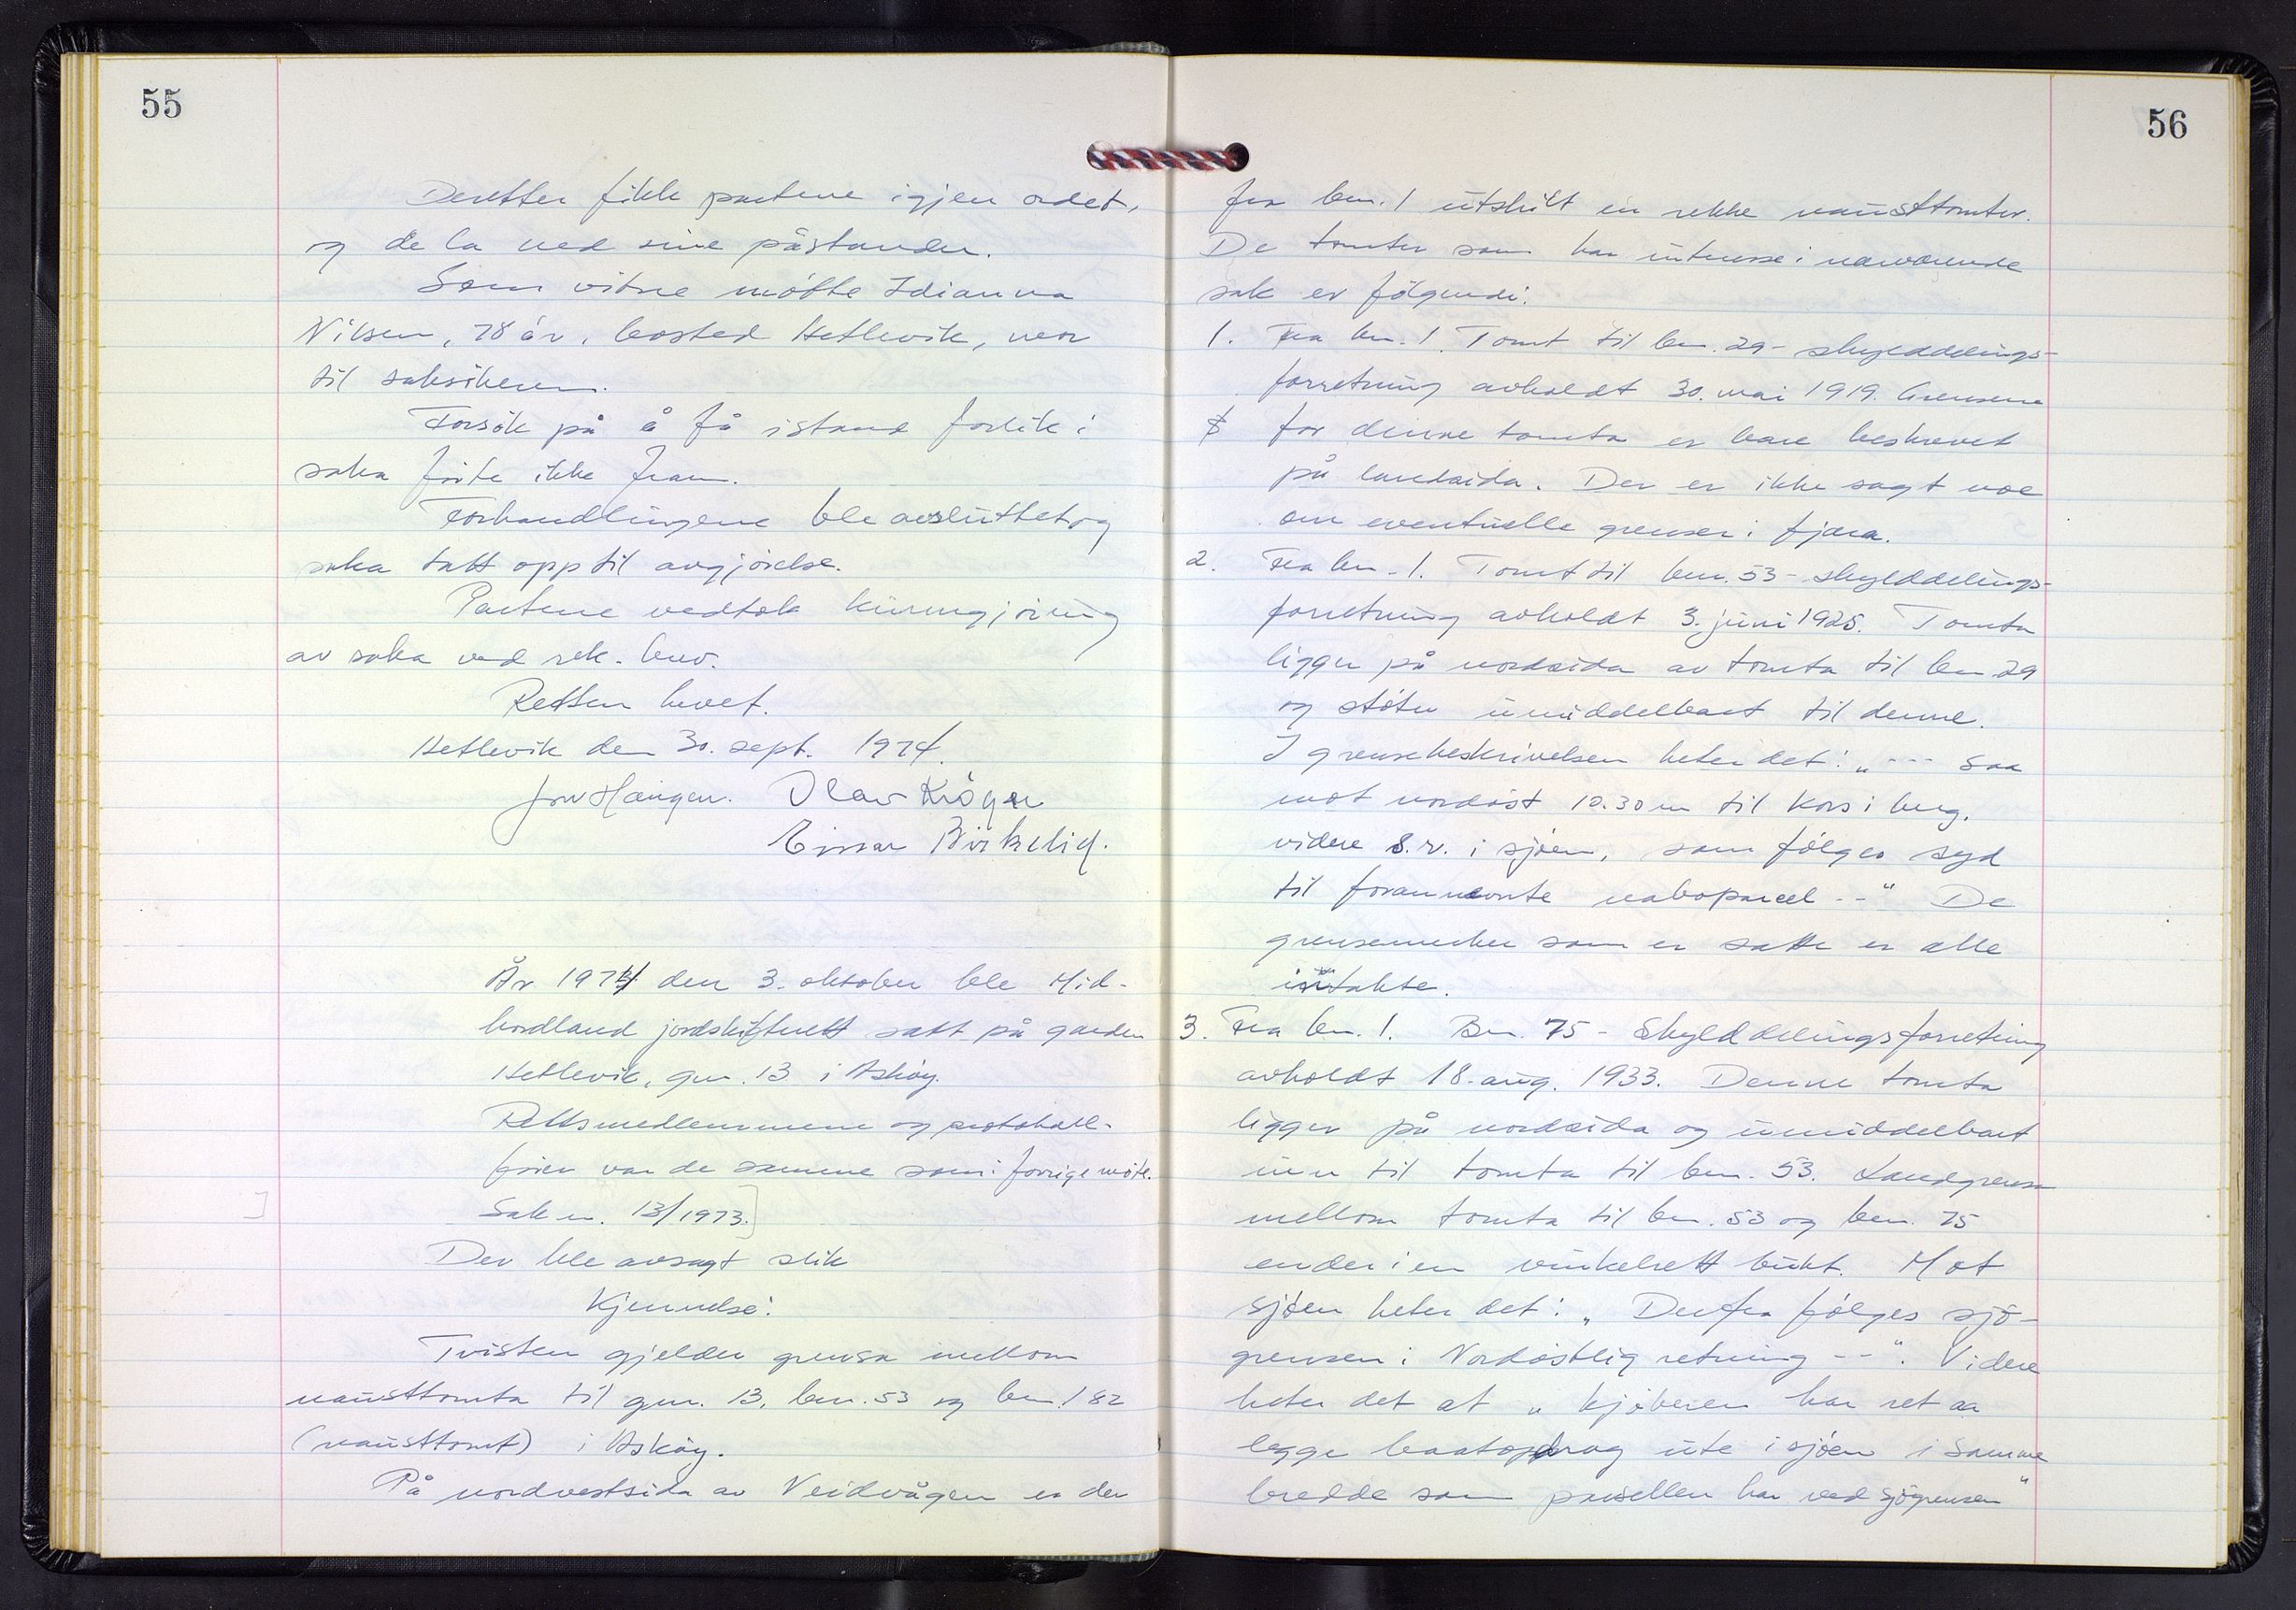 55
Deretter fikk partene igjen ordet,
og de la ned sine påstander.
Som vitne møtte Idianna
Nilsen, 78 år, bosted Hetlevik, mor
til saksøkeren.
Forsøk på å få istand forlik i
saka førte ikke fram.
Forhandlingene ble avsluttet og
saka tatt opp til avgjørelse.
Partene vedtok kunngjøring
av saka ved rek. brev.
Retten hevet.
Hetlevik den 30. sept. 1974.
Jon Haugen. Olav Krøger
Einar Birkelid.
År 1974 den 3. oktober ble Mid-
hordland jordskifterett satt på garden
Hetlevik, gnr. 13 i Askøy.
Rettsmedlemmene og protokoll-
fører var de samme som i forrige møte.
Sak nr. 13/1973.
Der ble avsagt slik
Kjennelse:
Tvisten gjelder grensa mellom
nausttomta til gnr. 13, bnr. 53 og bnr. 182
(nausttomt) i Askøy.
På nordvestsida av Veidvågen er der
56
fra bnr. 1 utskilt en rekke nausttomter.
De tomter som har interesse i nærværende
sak er følgende:
1. Fra bnr. 1. Tomt til bnr. 29 - skylddelings-
forretning avholdt 30. mai 1919. Grensene
for denne tomta er bare beskrevet
på landsida. Der er ikke sagt noe
om eventuelle grenser i fjæra.
2. Fra bnr. 1. Tomt til bnr. 53 - skylddelings-
forretning avholdt 3. juni 1925. Tomta
ligger på nordsida av tomta til bnr. 29
og støter umiddelbart til denne.
I grensebeskrivelsen heter det: „--- saa
mot nordøst 10.30 m til kors i berg,
videre s. r. i sjøen, som følges syd
til forannevnte naboparcel --" De
grensemerker som er satte er alle
intakte.
3. Fra bnr. 1. Bnr. 75 - Skylddelingsforretning
avholdt 18. aug. 1933. Denne tomta
ligger på nordsida og umiddelbart
inn til tomta til bnr. 53. Landgrensa
mellom tomta til bnr. 53 og bnr. 75
ender i en vinkelrett bukt. Mot
sjøen heter det: „Derfra følges sjø-
grensen i Nordøstlig retning --". Videre
heter det at „kjøberen har ret aa
legge baatopdrag ute i sjøen i samme
bredde som parsellen har ved sjøgrensen"